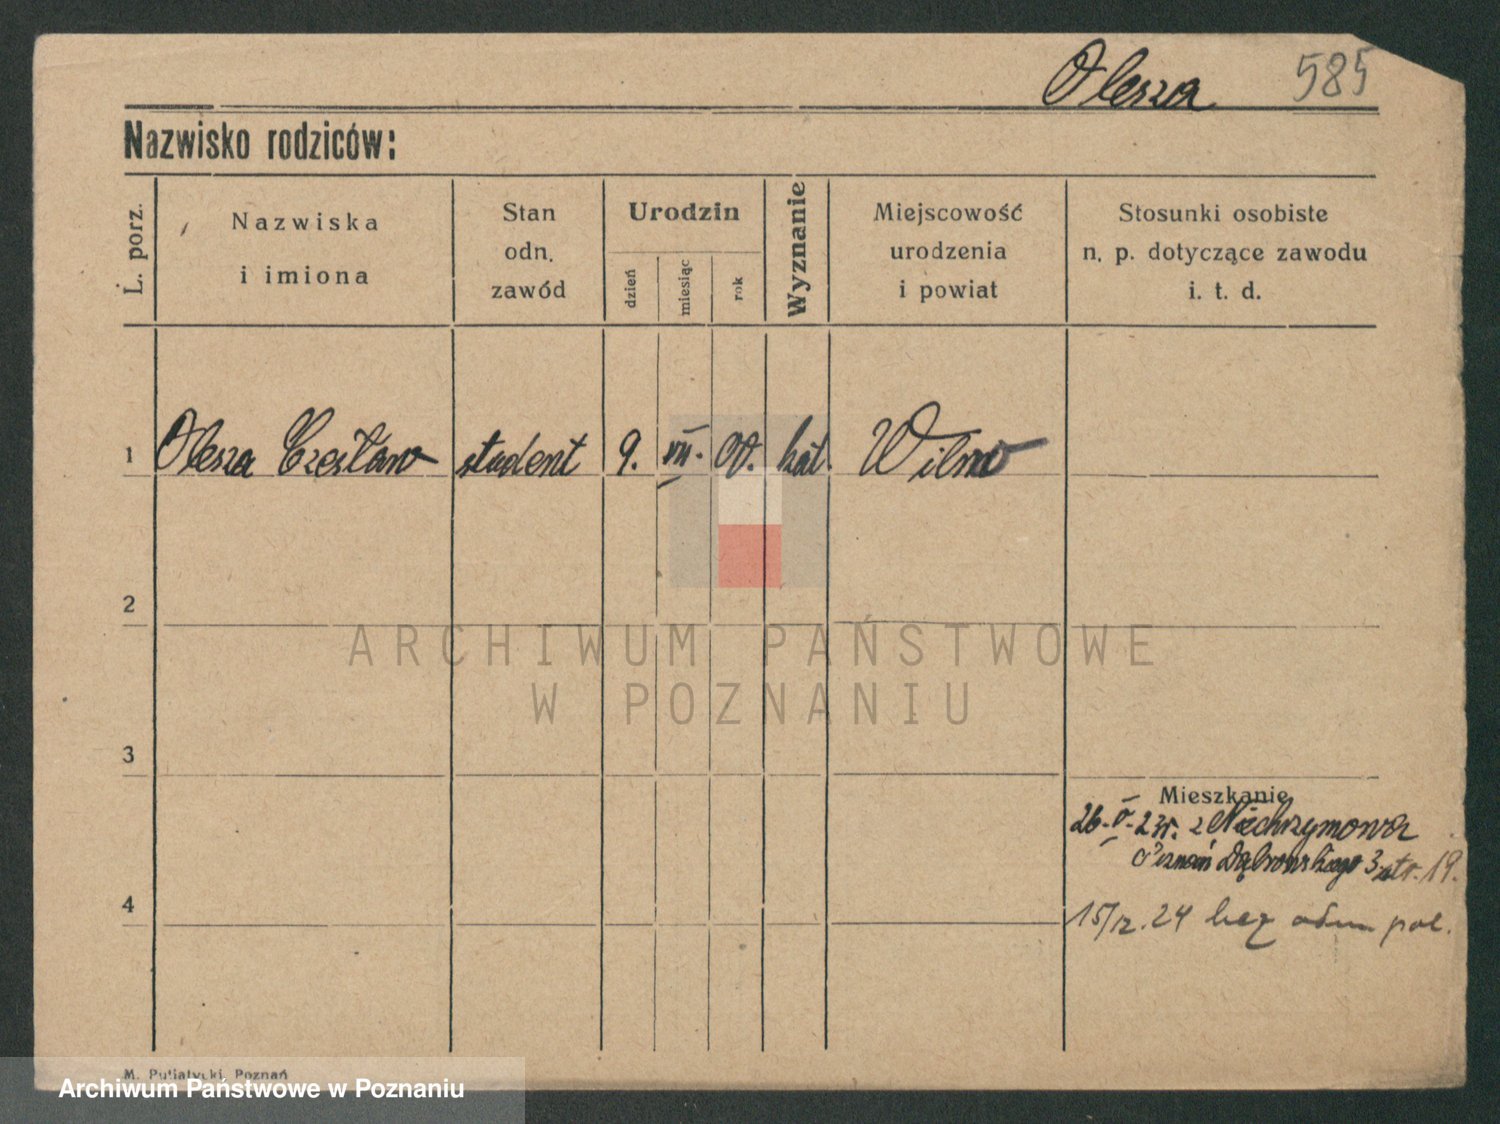 Olesza 585
Nazwisko rodziców:
L. porz.
Nazwiska
i imiona
Stan
odn.
zawód
Urodzin
dzień
miesiąc
rok
Wyznanie
Miejscowość
urodzenia
i powiat
Stosunki osobiste
n. p. dotyczące zawodu
i. t. d.
1 Olesza Czesław student 9. VII. 00. kat. Wilno
2
ARCHIWUM PAŃSTWOWE
W POZNANIU
3
Mieszkanie
26-V-23r. z Niechrzymowa
Poznań Dąbrowskiego 3. str. 19.
4
15/12.24 bez odm pol.
M. Putiatycki, Poznań
Archiwum Państwowe w Poznaniu